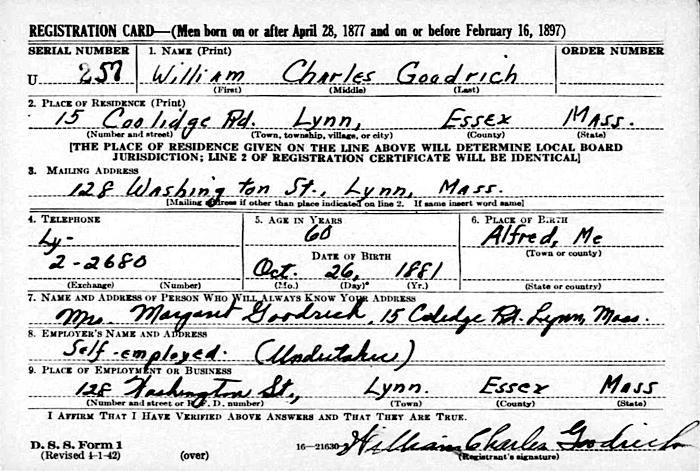 REGISTRATION CARD—(Men born on or after April 28, 1877 and on or before February 16, 1897)
SERIAL NUMBER 1. NAME (Print) ORDER NUMBER
U 257 William Charles Goodrich
(First) (Middle) (Last)
2. PLACE OF RESIDENCE (Print)
15 Coolidge Rd. Lynn, Essex Mass.
(Number and street) (Town, township, village, or city) (County) (State)
[THE PLACE OF RESIDENCE GIVEN ON THE LINE ABOVE WILL DETERMINE LOCAL BOARD
JURISDICTION; LINE 2 OF REGISTRATION CERTIFICATE WILL BE IDENTICAL]
3. MAILING ADDRESS
128 Washington St., Lynn, Mass.
[Mailing address if other than place indicated on line 2. If same insert word same]
4. TELEPHONE 5. AGE IN YEARS 6. PLACE OF BIRTH
Ly- 60 Alfred, Me
DATE OF BIRTH (Town or county)
2-2680 Oct. 26, 1881
(Exchange) (Number) (Mo.) (Day) (Yr.) (State or country)
7. NAME AND ADDRESS OF PERSON WHO WILL ALWAYS KNOW YOUR ADDRESS
Mrs. Margaret Goodrich, 15 Colidge Rd. Lynn, Mass.
8. EMPLOYER'S NAME AND ADDRESS
Self-employed. (Undertaker)
9. PLACE OF EMPLOYMENT OR BUSINESS
128 Washington St., Lynn. Essex Mass
(Number and street or R. F. D. number) (Town) (County) (State)
I AFFIRM THAT I HAVE VERIFIED ABOVE ANSWERS AND THAT THEY ARE TRUE.
D. S. S. Form 1
(Revised 4-1-42) (over) 16—21630-2 William Charles Goodrich
(Registrant's signature)